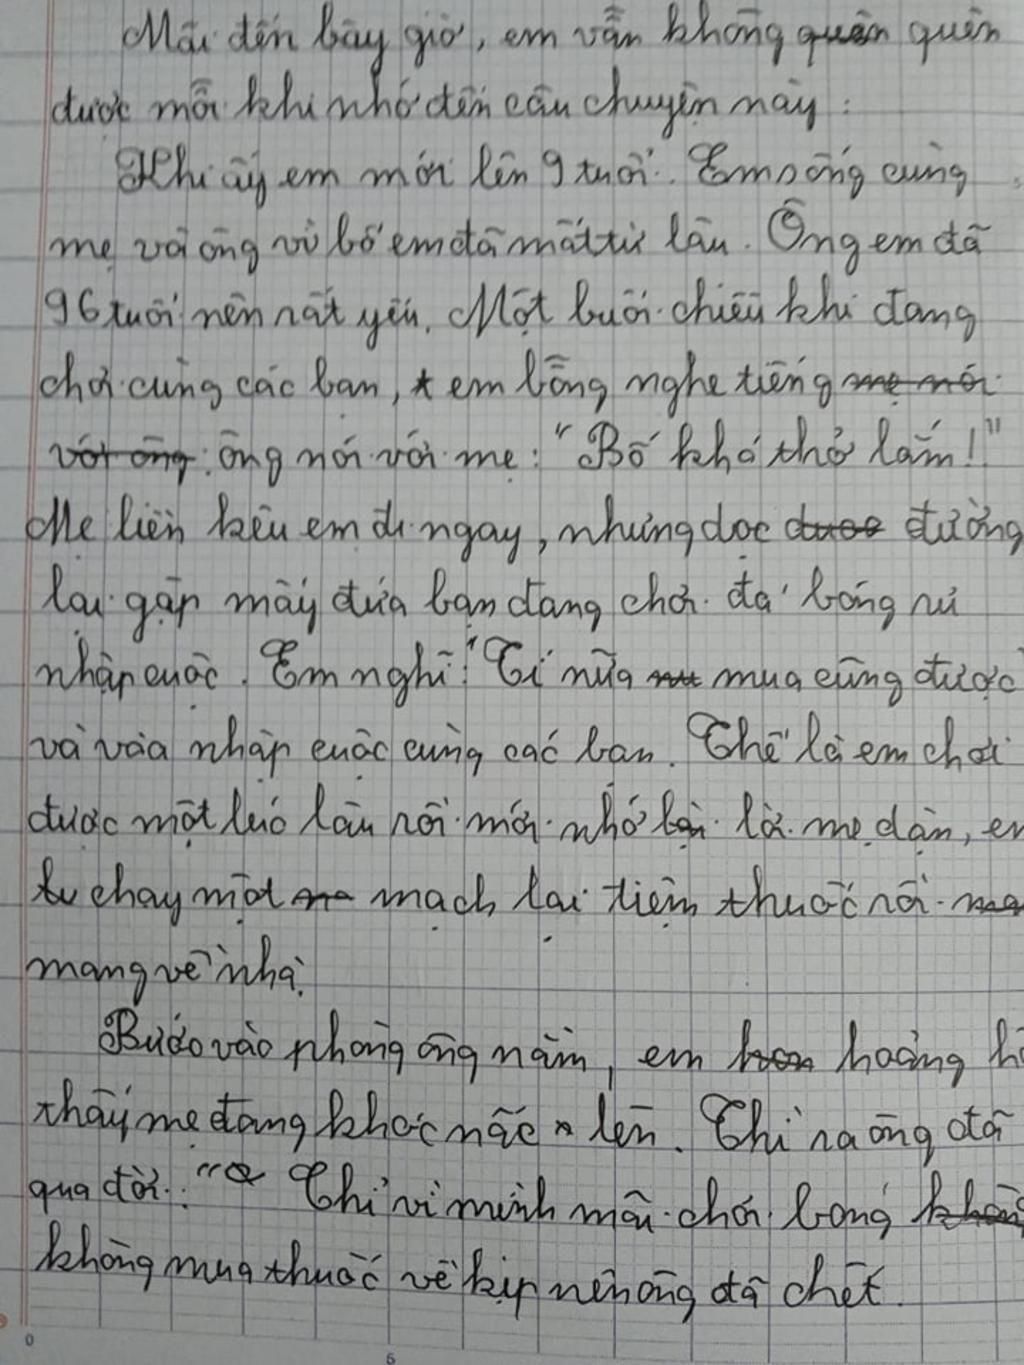 Mãi đến bây giờ, em vẫn không quên quên
được mỗi khi nhớ đến câu chuyện này :
Khi ấy em mới lên 9 tuổi. Em sống cùng
mẹ và ông vì bố em đã mất từ lâu. Ông em đã
96 tuổi nên rất yếu. Một buổi chiều khi đang
chơi cùng các bạn, em bỗng nghe tiếng mẹ nói
với ông : ông nói với mẹ : "Bố khó thở lắm!"
Mẹ liền kêu em đi ngay, nhưng dọc được đường
lại gặp mấy đứa bạn đang chơi đá bóng rủ
nhập cuộc. Em nghĩ: "Tí nữa mua cũng được
và vào nhập cuộc cùng các bạn. Thế là em chơi
được một lúc lâu rồi mới nhớ lại lời mẹ dặn, em
chạy một mạch lại tiệm thuốc rồi
mang về nhà.
Bước vào phòng ông nằm, em hoảng
thấy mẹ đang khóc nấc lên. Thì ra ông đã
qua đời.. " Chỉ vì mình mãi chơi bóng không
không mua thuốc về kịp nên ông đã chết.
0
5